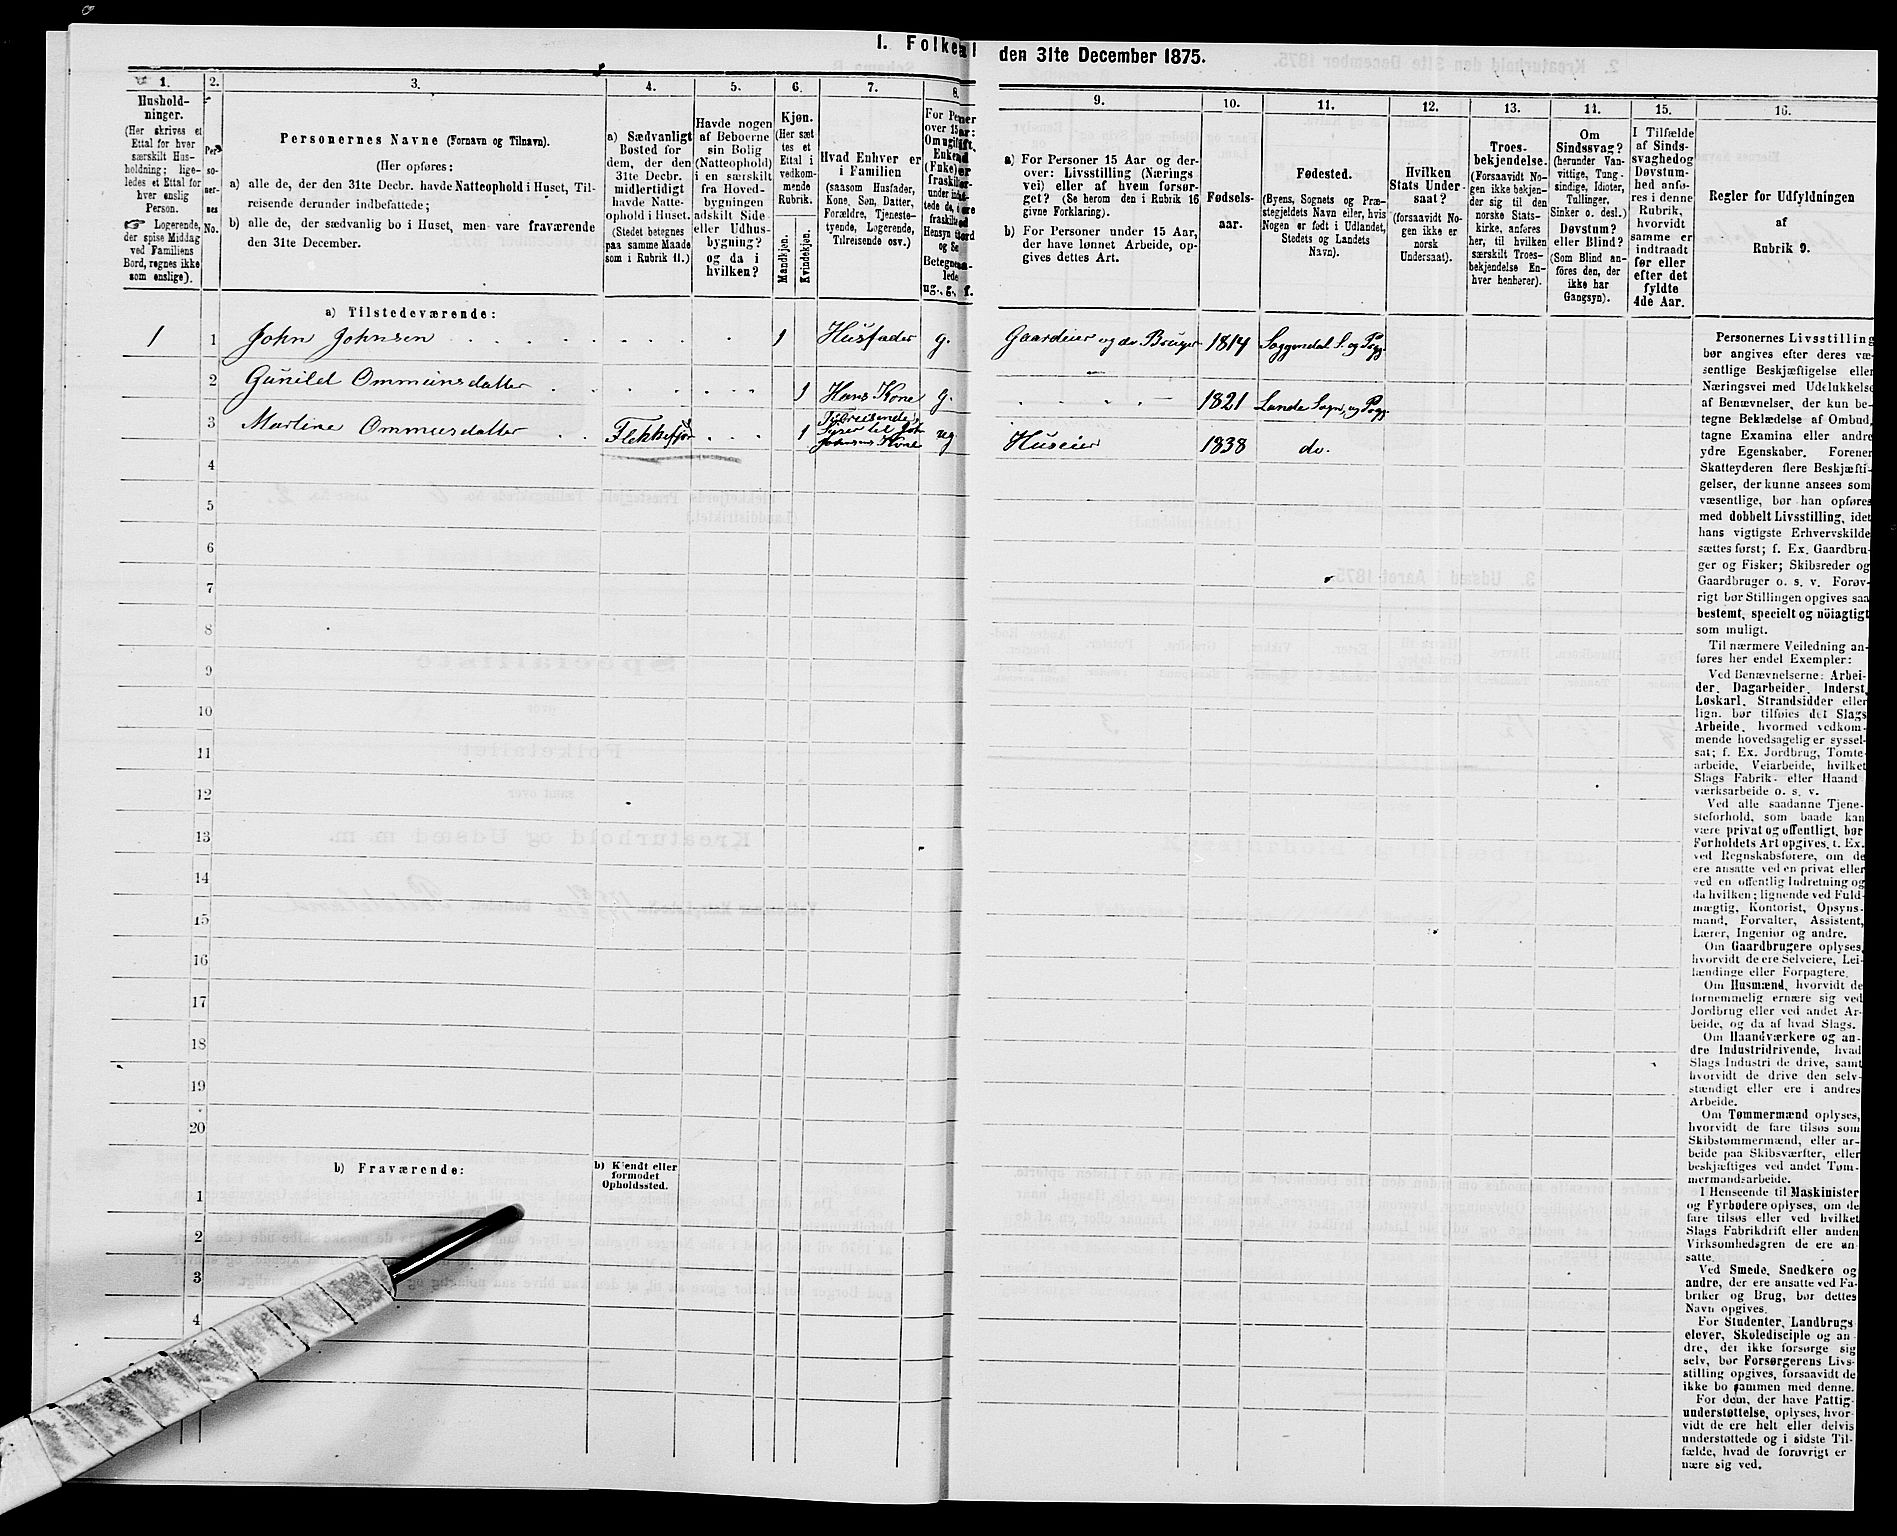 I. Folketal den 31te December 1875.
1.
Hushold-
ninger.
(Her skrives et
Ettal for hver
særskilt Hus-
holdning; lige-
ledes et Ettal for
hver enslig
Person.
☞ Logerende,
der spise Middag
ved Familiens
Bord, regnes ikke
som enslige).
2.
Per-
so-
ner-
nes
No.
3.
Personernes Navne (Fornavn og Tilnavn).
(Her opføres:
a) alle de, der den 31te Decbr. havde Natteophold i Huset, Til-
reisende derunder indbefattede;
b) alle de, der sædvanlig bo i Huset, men vare fraværende
den 31te December.
4.
a) Sædvanligt
Bosted for
dem, der den
31te Decbr.
midlertidigt
havde Natte-
ophold i Huset.
(Stedet betegnes
paa samme Maade
som i Rubrik 11.)
5.
Havde nogen
af Beboerne
sin Bolig
(Natteophold)
i en særskilt
fra Hoved-
bygningen
adskilt Side-
eller Udhus-
bygning?
og da i
hvilken?
6.
Kjøn.
(Her sæt-
tes et
Ettal i
vedkom-
mende
Rubrik.
Mandkjøn.
Kvindekjøn.
7.
Hvad Enhver er
i Familien
(saasom Husfader,
Kone, Søn, Datter,
Forældre, Tjeneste-
tyende, Logerende,
Tilreisende osv.)
8.
ug., g., f.
9.
a) For Personer 15 Aar og der-
over: Livsstilling (Nærings-
vei) eller af hvem forsør-
get? (Se herom den i Rubrik 16
givne Forklaring).
b) For Personer under 15 Aar,
der have lønnet Arbeide, op-
gives dettes Art.
10.
Fødsels-
aar.
11.
Fødested.
(Byens, Sognets og Præ-
stegjeldets Navn eller, hvis
Nogen er født i Udlandet,
Stedets og Landets
Navn).
12.
Hvilken
Stats Under-
saat?
(forsaavidt No-
gen ikke er
norsk
Undersaat).
13.
Troes-
bekjendelse.
(Forsaavidt No-
gen ikke bekjen-
der sig til den
norske Stats-
kirke, anføres
her, til hvilken
særskilt Troes-
bekjendelse En-
hver henhører).
14.
Om
Sindssvag?
(herunder Van-
vittige, Tung-
sindige, Idioter,
Tullinger,
Sinker o. desl.)
Døvstum?
eller Blind?
(Som Blind an-
føres den, der
ikke har
Gangsyn).
15.
I Tilfælde
af Sinds-
svaghed og
Døvstum-
hed anfø-
res i denne
Rubrik,
hvorvidt
samme er
indtraadt
før eller
efter det
fyldte
4de Aar.
16.
Regler for Udfyldningen
af
Rubrik 9.
a) Tilstedeværende:
1 1 John Johnsen 1 Husfader g. Gaardeier og do Bruger 1814 Soggendal S. og Prgj.
2 Gunild Ommunsdatter 1 Hans Kone g. 1821 Lunde Sogn og Prgj.
3 Martine Ommunsdatter Flekkefjor 1 Tilreisende, Syster til Joh Johnsens Kone ug Huseier 1838 do.
4
5
6
7
8
9
10
11
12
13
14
15
16
17
18
19
20
b) Fraværende:
b) Kjendt eller
formodet
Opholdssted.
1
2
3
4
Personernes Livsstilling
bør angives efter deres væ-
sentlige Beskjæftigelse eller
Næringsvei med Udelukkelse
af Benævnelser, der kun be-
tegne Beklædelse af Ombud,
tagne Examina eller andre
ydre Egenskaber. Forener
Skatteyderen flere Beskjæfti-
gelser, der kunne ansees som
væsentlige, bør han opføres
med dobbelt Livsstilling, idet
hans vigtigste Erhvervskilde
sættes først; f. Ex. Gaardbru-
ger og Fisker; Skibsreder og
Gaardbruger o. s. v. Forøv-
rigt bør Stillingen opgives saa
bestemt, specielt og nöiagtigt
som muligt.
Til nærmere Veiledning an-
føres her endel Exempler:
Ved Benævnelserne: Arbei-
der, Dagarbeider, Inderst,
Løskarl, Strandsidder eller
lign. bør tilføies det Slags
Arbeide, hvormed vedkom-
mende hovedsagelig er syssel-
sat; f. Ex. Jordbrug, Tomte-
arbeide, Veiarbeide, hvilket
Slags Fabrik- eller Haand-
værksarbeide o. s. v.
Ved alle saadanne Tjene-
steforhold, som baade kan
være privat og offentligt, bør
Forholdets Art opgives, t. Ex.
ved Regnskabsførere, om de
ere ansatte ved en privat eller
ved en offentlig Indretning og
da hvilken; lignende ved Fuld-
mægtig, Kontorist, Opsyns-
mand, Forvalter, Assistent,
Lærer, Ingeniør og andre.
Om Gaardbrugere oplyses,
hvorvidt de ere Selveiere, Lei-
lændinge eller Forpagtere.
Om Husmænd, hvorvidt de
fornemmelig ernære sig ved
Jordbrug eller ved andet Ar-
beide, og da af hvad Slags.
Om Haandværkere og an-
dre Industridrivende, hvad
Slags Industri de drive, samt
hvorvidt de drive den selv-
stændigt eller ere i andres
Arbeide.
Om Tømmermænd oplyses,
hvorvidt de fare tilsøs som
Skibstømmermænd, eller ar-
beide paa Skibsværfter, eller
beskjæftiges ved andet Tøm-
mermandsarbeide.
I Henseende til Maskinister
og Fyrbødere oplyses, om de
fare tilsøs eller ved hvilket
Slags Fabrikdrift eller anden
Virksomhedsgren de ere an-
satte.
Ved Smede, Snedkere og
andre, der ere ansatte ved Fa-
briker og Brug, bør dettes
Navn opgives.
For Studenter, Landbrugs-
elever, Skoledisciple og an-
dre, der ikke forsørge sig
selv, bør Forsørgerens Livs-
stilling opgives, forsaavidt de
ikke bo sammen med denne.
For dem, der have Fattig-
understøttelse, oplyses, hvor-
vidt de ere helt eller delvis
understøttede og i sidste Til-
fælde, hvad de forøvrigt er-
nære sig ved.